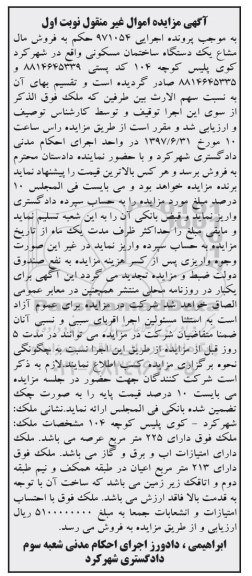 آگهی مزایده اموال غیر منقول نوبت اول
به موجب پرونده اجرایی ۹۷۱۰۵۴ حکم به فروش مال
مشاع یک دستگاه ساختمان مسکونی واقع در شهرکرد
کوی پلیس کوچه ۱۰۴ کد پستی ۸۸۱۴۶۴۵۳۳۹ و
۸۸۱۴۶۴۵۳۳۵ صادر گردیده است و تقسیم بهای آن
به نسبت سهم الارث بین طرفین که ملک فوق الذکر
از سوی این اجرا توقیف و توسط کارشناس توصیف
و ارزیابی شد و مقرر است از طریق مزایده راس ساعت
۱۰ مورخ ۱۳۹۷/۶/۳۱ در واحد اجرای احکام مدنی
دادگستری شهرکرد و با حضور نماینده دادستان محترم
به فروش برسد و هر کس بالاترین قیمت را پیشنهاد نماید
برنده مزایده خواهد بود و می بایست فی المجلس ۱۰
درصد مبلغ مورد مزایده را به حساب سپرده دادگستری
واریز نماید و فیش بانکی آن را به این شعبه تسلیم نماید
و مابقی مبلغ را حداکثر ظرف مدت یک ماه از تاریخ
مزایده به حساب سپرده واریز نماید در غیر این صورت
وجوه واریزی پس از کسر هزینه مزایده به نفع صندوق
دولت ضبط و مزایده تجدید می گردد این آگهی برای
یکبار در روزنامه محلی منتشر همچنین در معابر عمومی
الصاق خواهد شد شرکت در مزایده برای عموم آزاد
است به استثنا مسئولین اجرا اقربای سببی و نسبی آنان
ضمنا متقاضیان شرکت در مزایده می توانند در مدت ۵
روز قبل از مزایده از طریق این اجرا نسبت به چگونگی
نحوه برگزاری مزایده کسب اطلاع نمایند.لازم به ذکر
است شرکت کنندگان جهت حضور در جلسه مزایده
می بایست ۱۰ درصد قیمت پایه را به صورت چک
تضمین شده بانکی فی المجلس ارائه نماید.نشانی ملک:
شهرکرد - کوی پلیس کوچه ۱۰۴ مشخصات ملک:
ملک فوق دارای ۲۲۵ متر مربع عرصه می باشد. ملک
دارای امتیازات اب و برق و گاز می باشد. ملک فوق
دارای ۲۱۳ متر مربع اعیان در طبقه همکف و نیم طبقه
دوم و اتاقک زیر زمین می باشد که ساخت آن با توجه
به قدمت بالا فاقد ارزش می باشد. ملک فوق با احتساب
امتیازات و انشعابات جمعا به مبلغ ۵۱۰۰۰۰۰۰۰۰ ریال
ارزیابی و از طریق مزایده به فروش می رسد.
ابراهیمی ، دادورز اجرای احکام مدنی شعبه سوم
دادگستری شهرکرد